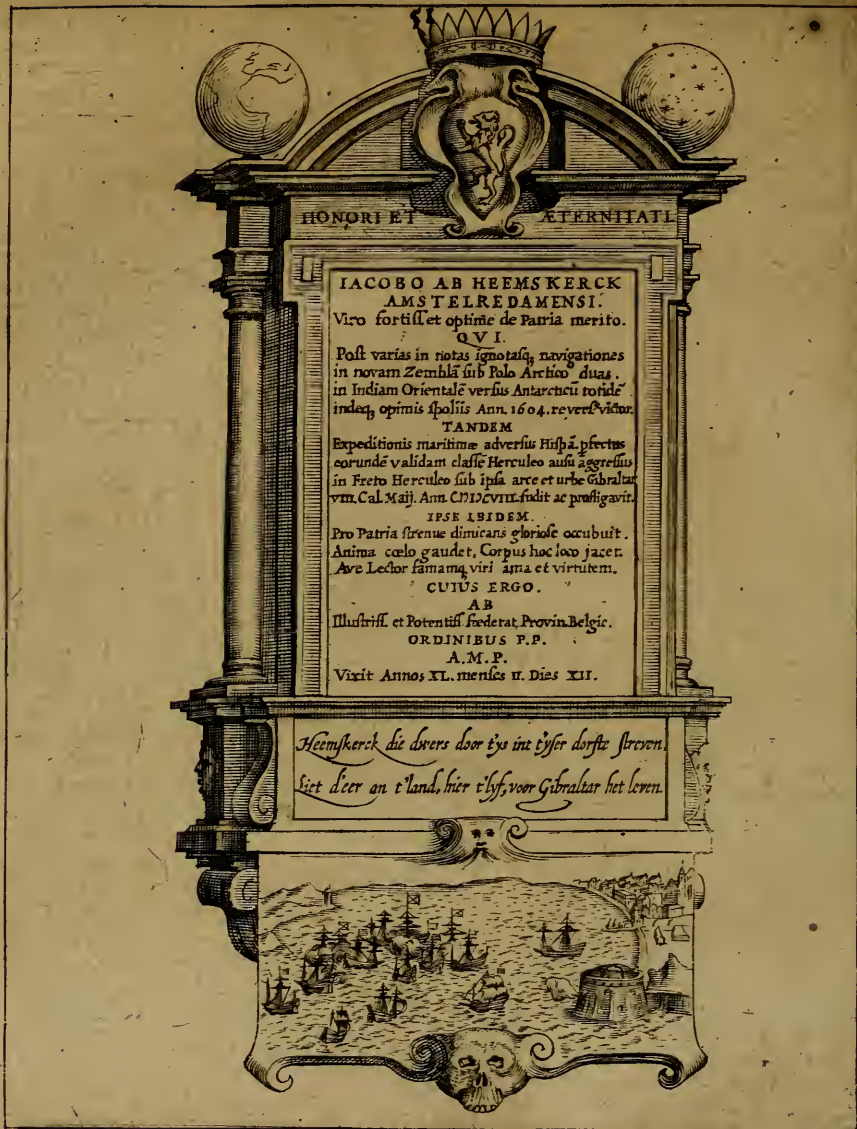 HONORI ET ÆTERNITATI.
IACOBO AB HEEMSKERCK
AMSTELREDAMENSI.
Viro fortiſſ et optime de Patria merito.
QVI.
Poſt varias in notas ignotaſq, navigationes
in novam Zemblā ſub Polo Arctico duas.
in Indiam Orientalē verſus Antarcticū totidē.
indeq, opimis ſpoliis Ann. 1604. reverſ9 victor.
TANDEM
Expeditionis maritimæ adverſus Hiſpā. pfectus
eorundē validam claſſē Herculeo auſu āggreſſus
in Freto Herculeo ſub ipſa arce et urbe Gibraltar
VIII. Cal. Maij. Ann. CIƆIƆCVIII. fudit ac profligavit.
IPSE IBIDEM.
Pro Patria ſtrenue dimicans glorioſe occubuit.
Anima cœlo gaudet, Corpus hoc loco jacet.
Ave Lector famamq, viri ama et virtutem.
CUIUS ERGO.
AB
Illuſtriſſ. et Potentiſſ fœderat, Provin. Belgic.
ORDINIBUS P.P.
A.M.P.
Vixit Annos XL. menſes II. Dies XII.
Heemſkerck die dwers door t'ys int t'yſer dorſte ſtreven
Liet d'eer an t'land, hier t'lyf, voor Gibraltar het leven.